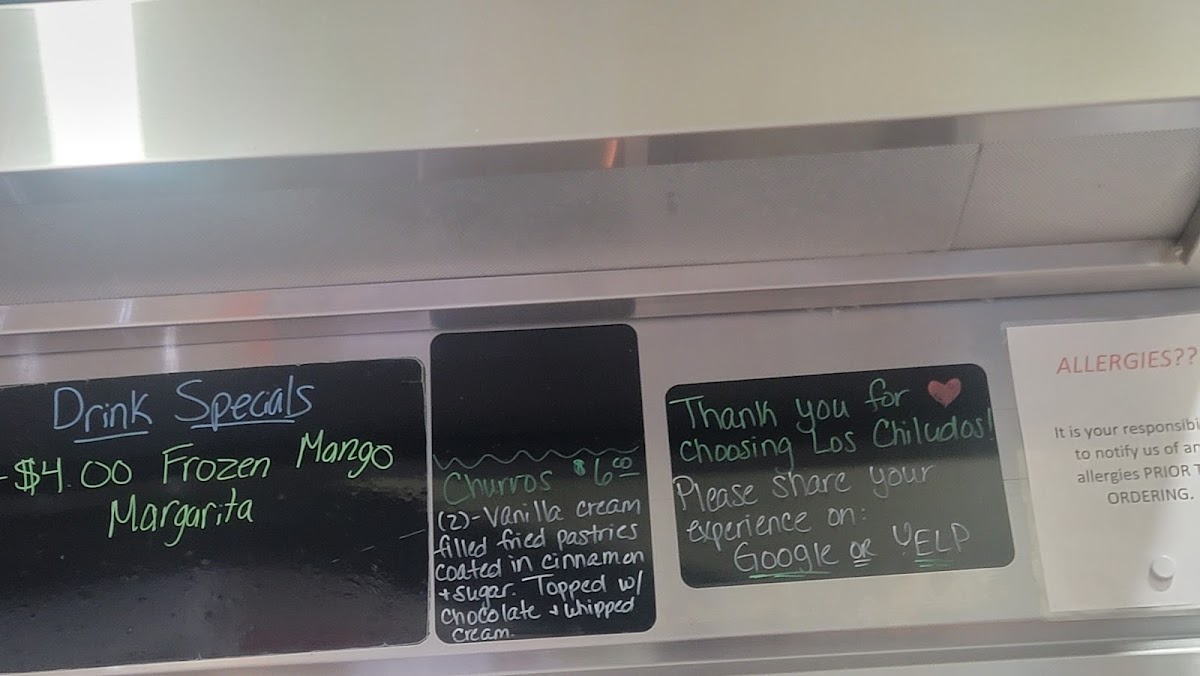 Drink Specials
-$4.00 Frozen Mango
Margarita
Churros $6.00
(2)-Vanilla cream
filled fried pastries
coated in cinnamon
+sugar. Topped w/
chocolate + whipped
cream.
Thank you for
choosing Los Chiludos!
Please share your
experience on:
Google or YELP
ALLERGIES??
It is your
to notify us of
allergies PRIOR
ORDERING.